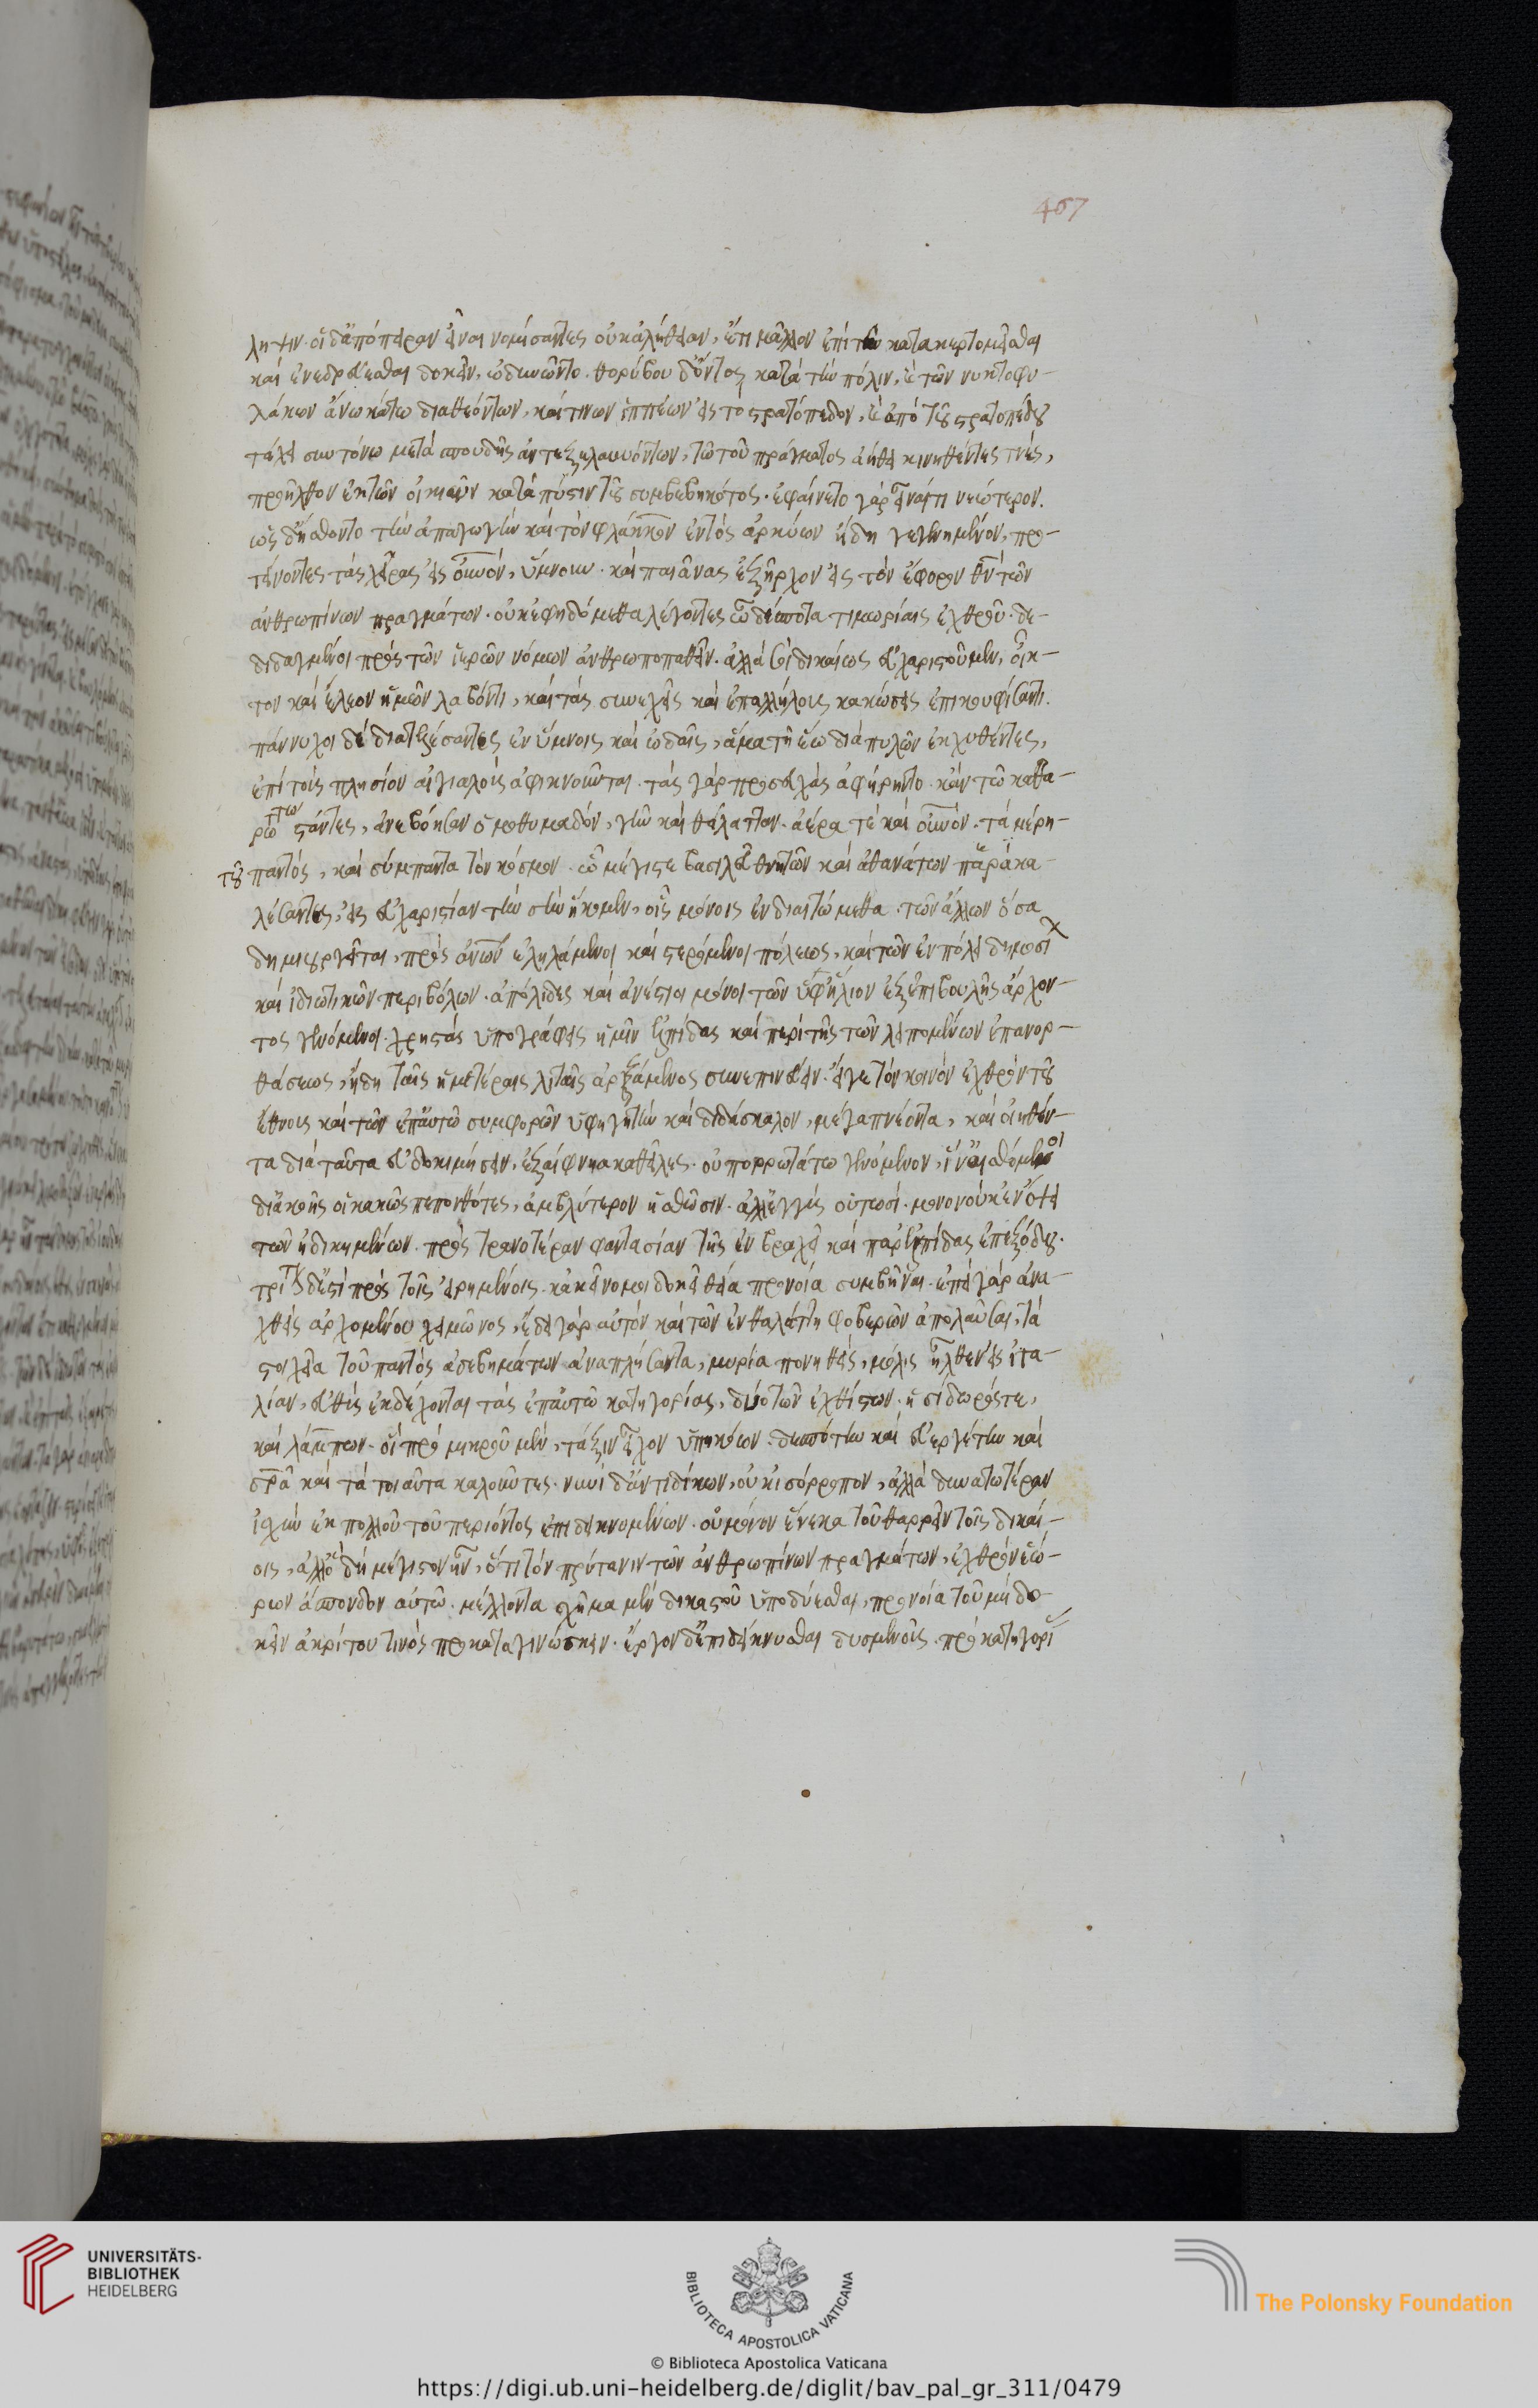 467
ληψιν. οἱ δ' ἀπόπειραν εἶναι νομίσαντες οὐκ ἀλήθειαν, ἔτι μᾶλλον ἐπὶ τῷ κατακερτομεῖσθαι
καὶ ἐνεδρεύεσθαι δοκεῖν, ὠδυνῶντο. θορύβου δ' ὄντος κατὰ τὴν πόλιν, καὶ τῶν νυκτοφυ-
λάκων ἄνω κάτω διαθεόντων, καί τινων ἱππέων εἰς τὸ στρατόπεδον, καὶ ἀπὸ τοῦ στρατοπέδου
τάχει συντόνῳ μετὰ σπουδῆς ἀντεξελαυνόντων, τῷ τοῦ πράγματος ἀήθει κινηθέντες τινές,
προῆλθον ἐκ τῶν οἰκιῶν κατὰ πύστιν τοῦ συμβεβηκότος. ἐφαίνετο γὰρ εἶναί τι νεώτερον.
ὡς δ' ᾔσθοντο τὴν ἀπαγωγὴν καὶ τὸν φλάκκον ἐντὸς ἀρκύων ἤδη γεγενημένον, προ-
τείνοντες τὰς χεῖρας εἰς οὐνόν, ὕμνουν. καὶ παιᾶνας ἐξῆρχον εἰς τὸν ἔφορον θν τῶν
ἀνθρωπίνων πραγμάτων. οὐκ ἐφηδόμεθα λέγοντες ὦ δέσποτα τιμωρίαις ἐχθροῦ. δε-
διδαγμένοι πρὸς τῶν ἱερῶν νόμων ἀνθρωποπαθεῖν. ἀλλὰ σοὶ δικαίως εὐχαριστοῦμεν, οἶκ-
τον καὶ ἔλεον ἡμῶν λαβόντι, καὶ τὰς συνεχεῖς καὶ ἐπαλλήλους κακώσεις ἐπικουφίσαντι.
πάννυχοι δὲ διατελέσαντες ἐν ὕμνοις καὶ ᾠδαῖς, ἅμα τῇ ἕῳ διὰ πυλῶν ἐκχυθέντες,
ἐπὶ τοὺς πλησίον αἰγιαλοὺς ἀφικνοῦνται. τὰς γὰρ προσευχὰς ἀφῄρηντο. κἀν τῷ καθα-
ρωτάτῳ στάντες, ἀνεβόησαν ὁμοθυμαδόν, γῆν καὶ θάλατταν. ἀέρα τὲ καὶ οὐνόν. τὰ μέρη
τοῦ παντός, καὶ σύμπαντα τὸν κόσμον. ὦ μέγιστε βασιλεῦ θνητῶν καὶ ἀθανάτων παρακα-
λέσαντες, εἰς εὐχαριστίαν τὴν σὴν ἥκομεν, οἷς μόνοις ἐνδιαιτώμεθα. τῶν ἄλλων ὅσα
δημιουργεῖται, πρὸς ἀνων ἐληλαμένοι καὶ στερόμενοι πόλεως, καὶ τῶν ἐν πόλει δημοσί
καὶ ἰδιωτικῶν περιβόλων. ἀπόλιδες καὶ ἀνέστιοι μόνοι τῶν ὑφ' ἥλιον ἐξ ἐπιβουλῆς ἄρχον-
τος γενόμενοι. χρηστὰς ὑπογράφεις ἡμῖν ἐλπίδας καὶ περὶ τῆς τῶν λειπομένων ἐπανορ-
θώσεως, ἤδη ταῖς ἡμετέραις λιταῖς ἀρξάμενος συνεπινεύειν. εἴγε τὸν κοινὸν ἐχθρὸν τοῦ
ἔθνους καὶ τῶν ἐπ' αὐτῷ συμφορῶν ὑφηγητὴν καὶ διδάσκαλον, μέγα πνέοντα, καὶ οἰηθέν-
τα διὰ ταῦτα εὐδοκιμήσειν, ἐξαίφνης καθεῖλες. οὐ πορρωτάτω γενόμενον, ἵν' αἰσθόμενοι
δι' ἀκοῆς οἱ κακῶς πεπονθότες, ἀμβλύτερον ἡσθῶσιν. ἀλλ' ἐγγὺς οὑτωσί. μονονοὺκ ἐν ὄψει
τῶν ἠδικημένων. πρὸς τρανοτέραν φαντασίαν τῆς ἐν βραχεῖ καὶ παρ' ἐλπίδας ἐπεξόδου.
τρίτον δ' ἐστὶ πρὸς τοῖς εἰρημένοις. κἀκεῖνό μοι δοκεῖ θείᾳ προνοίᾳ συμβῆναι. ἐπεὶ γὰρ ἀνα-
χθεὶς ἀρχομένου χειμῶνος, ἔδει γὰρ αὐτὸν καὶ τῶν ἐν θαλάττῃ φοβερῶν ἀπολαῦσαι, τὰ
στοιχεῖα τοῦ παντὸς ἀσεβημάτων ἀναπλήσαντα, μυρία πονηθείς, μόλις ἦλθεν εἰς ἰτα-
λίαν, εὐθὺς ἐκδέχονται τὰς ἐπ' αὐτῷ κατηγορίας, δύο τῶν ἐχθίστων. ἰσίδωρός τε,
καὶ λάμπων. οἳ πρὸ μικροῦ μὲν, τάξιν εἶχον ὑπηκόων. δεσπότην καὶ εὐεργέτην καὶ
σρα καὶ τὰ τοιαῦτα καλοῦντες. νυνὶ δ' ἀντιδίκων, οὐκ ἰσόρροπον, ἀλλὰ δυνατωτέραν
ἰσχὺν ἐκ πολλοῦ τοῦ περιόντος ἐπιδεικνυμένων. οὐ μόνον ἕνεκα τοῦ θαρρεῖν τοῖς δικαί-
οις, ἀλλ' ὃ δὴ μέγιστον ἦν, ὅτι τὸν πρύτανιν τῶν ἀνθρωπίνων πραγμάτων, ἐχθρὸν ἑώ-
ρων ἄσπονδον αὐτῷ. μέλλοντα σχῆμα μὲν δικαστοῦ ὑποδύεσθαι, προνοίᾳ τοῦ μὴ δο-
κεῖν ἀκρίτου τινὸς προκαταγινώσκειν. ἔργον δ' ἐπιδείκνυσθαι δυσμενοῦς. πρὸ κατηγορί
UNIVERSITÄTS-
BIBLIOTHEK
HEIDELBERG
BIBLIOTECA APOSTOLICA VATICANA
The Polonsky Foundation
© Biblioteca Apostolica Vaticana
https://digi.ub.uni-heidelberg.de/diglit/bav_pal_gr_311/0479